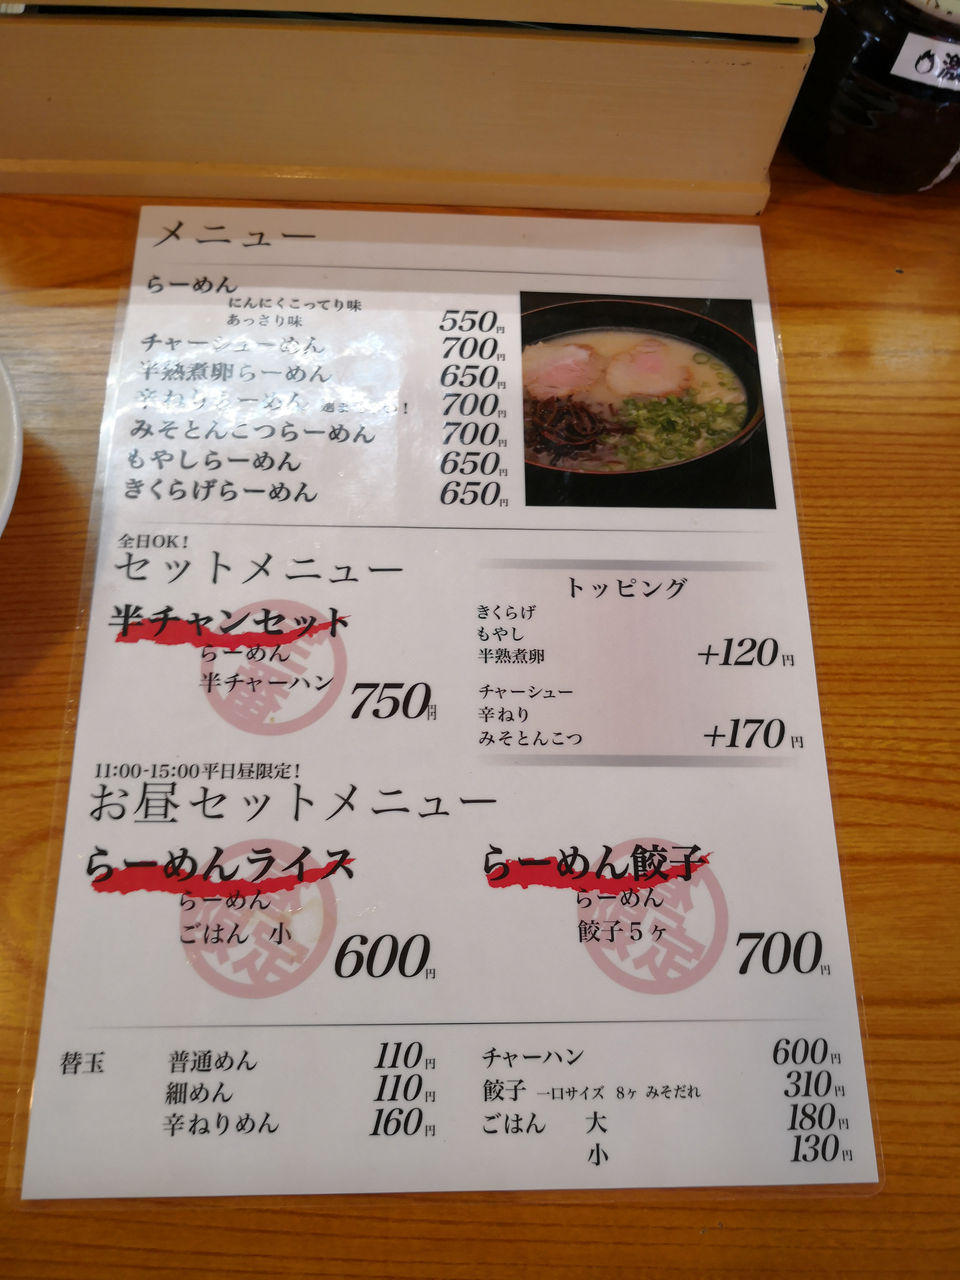 激
メニュー
らーめん
にんにくこってり味
あっさり味 550円
チャーシューめん 700円
半熟煮卵らーめん 650円
辛ねりらーめん 700円
みそとんこつらーめん 700円
もやしらーめん 650円
きくらげらーめん 650円
全日OK!
セットメニュー
半チャンセット
らーめん
半チャーハン 750円
トッピング
きくらげ
もやし
半熟煮卵 +120円
チャーシュー
辛ねり
みそとんこつ +170円
11:00-15:00平日昼限定!
お昼セットメニュー
らーめんライス
らーめん
ごはん 小 600円
らーめん餃子
らーめん
餃子5ヶ 700円
替玉 普通めん 110円
細めん 110円
辛ねりめん 160円
チャーハン 600円
餃子 一口サイズ 8ヶ みそだれ 310円
ごはん 大 180円
小 130円